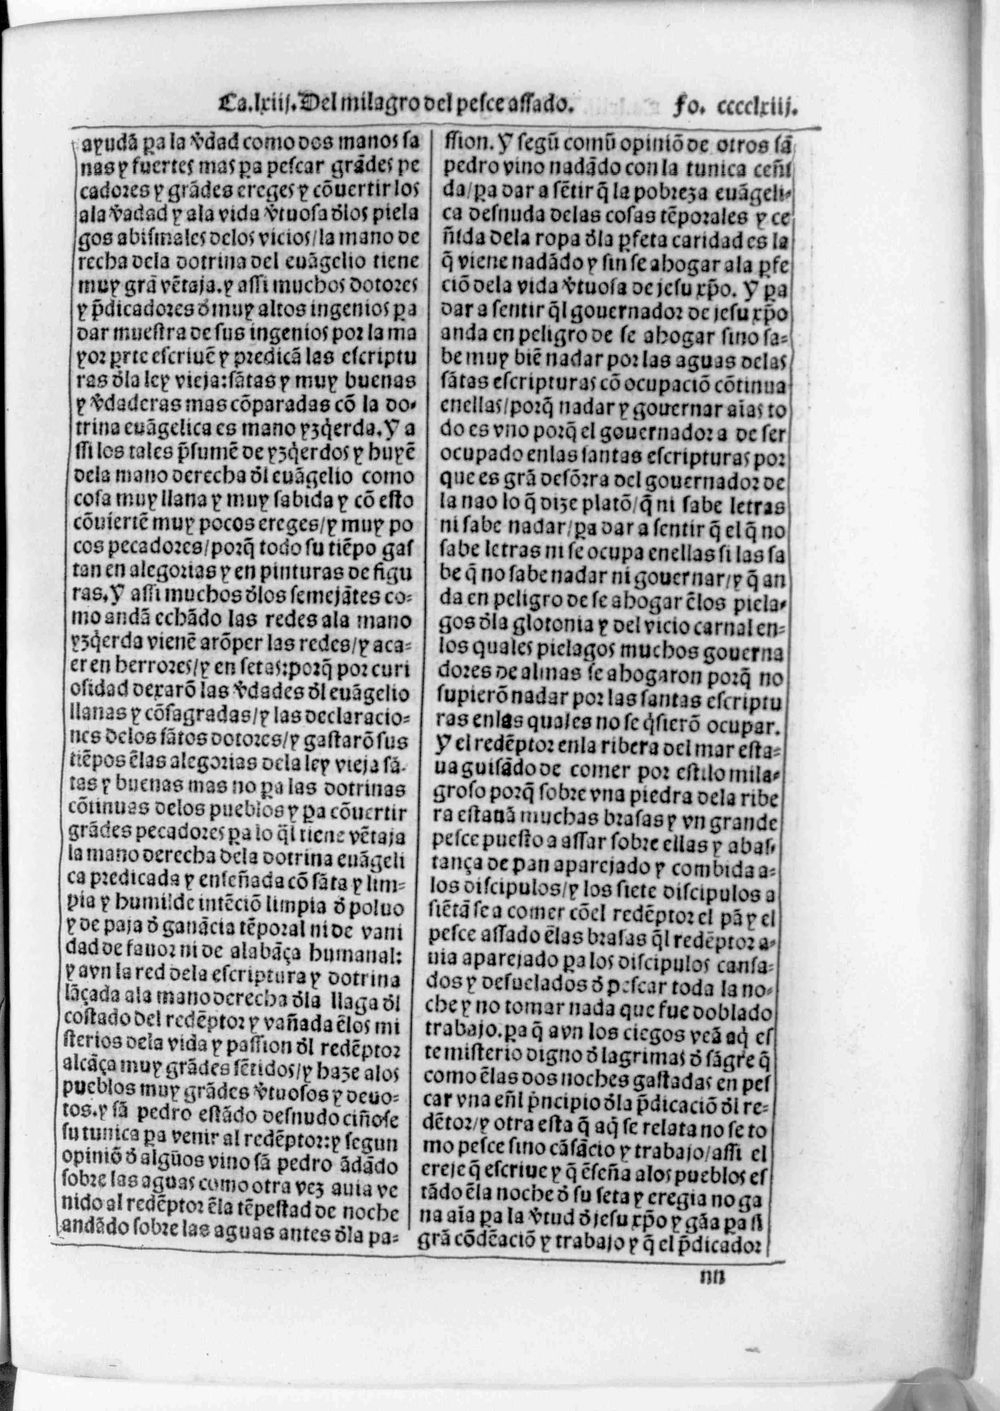 Ca.lxiij. Del milagro del pesce assado. fo. cccclxiij.
ayudã pa la v̄dad como dos manos sa
nas y fuertes mas pa pescar grãdes pe
cadores y grãdes ereges y cõuertir los
ala v̄adad y ala vida v̄tuosa d̄los piela
gos abismales delos vicios/la mano de
recha dela dotrina del euãgelio tiene
muy grã vẽtaja.y assi muchos dotores
y p̄dicadores d̄ muy altos ingenios pa
dar muestra de sus ingenios por la ma
yor prte escriuẽ y predicã las escriptu
ras d̄la ley vieja:sãtas y muy buenas
y v̄daderas mas cõparadas cõ la do-
trina euãgelica es mano yzq̄erda.Y a
ssi los tales p̄sumẽ de yzq̄erdos y huyẽ
dela mano derecha d̄l euãgelio como
cosa muy llana y muy sabida y cõ esto
cõuiertẽ muy pocos ereges/y muy po
cos pecadores/porq̄ todo su tiẽpo gas
tan en alegorias y en pinturas de figu
ras.Y assi muchos d̄los semejãtes co-
mo andã echãdo las redes ala mano
yzq̄erda vienẽ arõper las redes/y aca-
er en herrores/y en setas:porq̄ por curi
osidad dexarõ las v̄dades d̄l euãgelio
llanas y cõsagradas/y las declaracio-
nes delos sãtos dotores/y gastarõ sus
tiẽpos ẽlas alegorias dela ley vieja sã-
tas y buenas mas no pa las dotrinas
cõtinuas delos pueblos y pa cõuertir
grãdes pecadores pa lo q̄l tiene vẽtaja
la mano derecha dela dotrina euãgeli
ca predicada y enseñada cõ sãta y lim-
pia y humilde intẽciõ limpia d̄ poluo
y de paja d̄ ganãcia tẽporal ni de vani
dad de fauor ni de alabãça humanal:
y avn la red dela escriptura y dotrina
lãçada ala mano derecha d̄la llaga d̄l
costado del redẽptor y vañada ẽlos mi
sterios dela vida y passion d̄l redẽptor
alcãça muy grãdes sẽtidos/y haze alos
pueblos muy grãdes v̄tuosos y deuo-
tos.y sã pedro estãdo desnudo ciñose
su tunica pa venir al redẽptor:y segun
opiniõ d̄ algũos vino sã pedro ãdãdo
sobre las aguas como otra vez auia ve
nido al redẽptor ẽla tẽpestad de noche
andãdo sobre las aguas antes d̄la pa-
ssion. Y segũ comũ opiniõ de otros sã
pedro vino nadãdo con la tunica ceñi
da/pa dar a sẽtir q̄ la pobreza euãgeli-
ca desnuda delas cosas tẽporales y ce
ñida dela ropa d̄la p̄feta caridad es la
q̄ viene nadãdo y sin se ahogar ala p̄fe
ciõ dela vida v̄tuosa de jesu xp̄o. Y pa
dar a sentir q̄l gouernador de jesu xp̄o
anda en peligro de se ahogar sino sa-
be muy biẽ nadar por las aguas delas
sãtas escripturas cõ ocupaciõ cõtinua
enellas/porq̄ nadar y gouernar aĩas to
do es vno porq̄ el gouernador a de ser
ocupado enlas santas escripturas por
que es grã desõrra del gouernador de
la nao lo q̄ dize platõ/q̄ ni sabe letras
ni sabe nadar/pa dar a sentir q̄ el q̄ no
sabe letras ni se ocupa enellas si las sa
be q̄ no sabe nadar ni gouernar/y q̄ an
da en peligro de se ahogar ẽlos piela-
gos d̄la glotonia y del vicio carnal en-
los quales pielagos muchos gouerna
dores de almas se ahogaron porq̄ no
supierõ nadar por las santas escriptu
ras enlas quales no se q̄sierõ ocupar.
Y el redẽptor enla ribera del mar esta-
ua guisãdo de comer por estilo mila-
groso porq̄ sobre vna piedra dela ribe
ra estauã muchas brasas y vn grande
pesce puesto a assar sobre ellas y abas-
tança de pan aparejado y combida a-
los discipulos/y los siete discipulos a
siẽtã se a comer cõel redẽptor el pã y el
pesce assado ẽlas brasas q̄l redẽptor a-
uia aparejado pa los discipulos cansa-
dos y desuelados d̄ pescar toda la no-
che y no tomar nada que fue doblado
trabajo.pa q̄ avn los ciegos veã aq̄ es
te misterio digno d̄ lagrimas d̄ sãgre q̄
como ẽlas dos noches gastadas en pes
car vna eñl p̄ncipio d̄la p̄dicaciõ d̄l re-
dẽtor/y otra esta q̄ aq̄ se relata no se to
mo pesce sino cãsãcio y trabajo/assi el
ereje q̄ escriue y q̄ ẽseña alos pueblos es
tãdo ẽla noche d̄ su seta y eregia no ga
na aĩa pa la v̄tud d̄ jesu xp̄o y gãa pa si
grã cõdẽaciõ y trabajo y q̄ el p̄dicador
nn